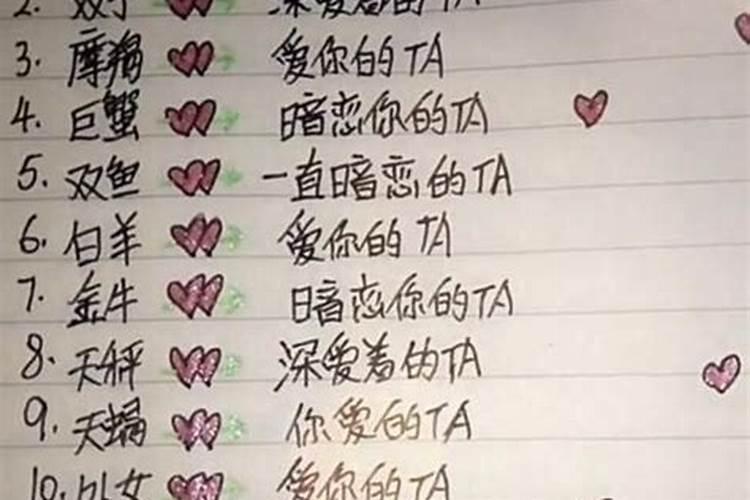 2. 双子 深爱着的TA
3. 摩羯 爱你的TA
4. 巨蟹 暗恋你的TA
5. 双鱼 一直暗恋的TA
6. 白羊 爱你的TA
7. 金牛 暗恋你的TA
8. 天秤 深爱着的TA
9. 天蝎 你爱的TA
10. 处女 爱你的TA